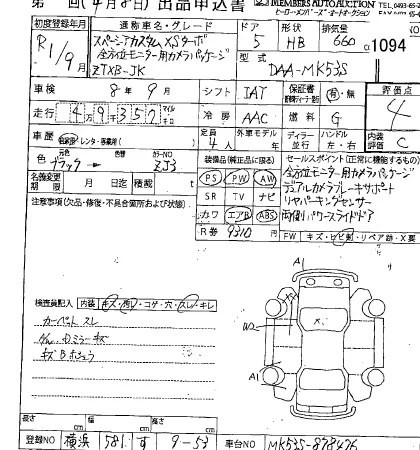 第 回(4月8日)出品申込書 MEMBERS AUTO AUCTION
ヒーローメンバーズ・オートオークション TEL.0493-65-2
初度登録年月 通称車名・グレード ドア 形状 排気量
R1/9月 スペーシアカスタム XSターボ 5 HB 660 1094
全方位モニター用カメラパッケージ 型式
ZTXB-JK DAA-MK53S
車検 8年9月 シフト IAT 保証書 有・無 評価点
走行 49,352 マイル キロ 冷房 AAC 燃料 G 4
車歴 自家用 レンタ・事業用( ) 定員 4人 外車モデル ディーラー 並行 ハンドル 左・右 内装 C
色 元色 ブラック 色替 カラーNO ZJ3 装備品(純正品に限る) セールスポイント(正常に機能するもの)
名義変更期限 月 日迄 積載 t PS PW AW 全方位モニター用カメラパッケージ
注意事項(欠品・修復・不具合個所および状態) SR TV ナビ デュアルカメラブレーキサポート
カワ エアB ABS リヤパーキングセンサー
R券 9310円 両側パワースライドドア
FW キズ・ヒビ割・リペア跡・X要
A1
検査員記入 内装 キズ・汚レ・コゲ・穴・スレ・キレ
カーペットスレ W2
キズ A1
A1
長さ cm 幅 cm 高さ cm
登録NO 横浜 581 す 9-53 車台NO MK53S-878476